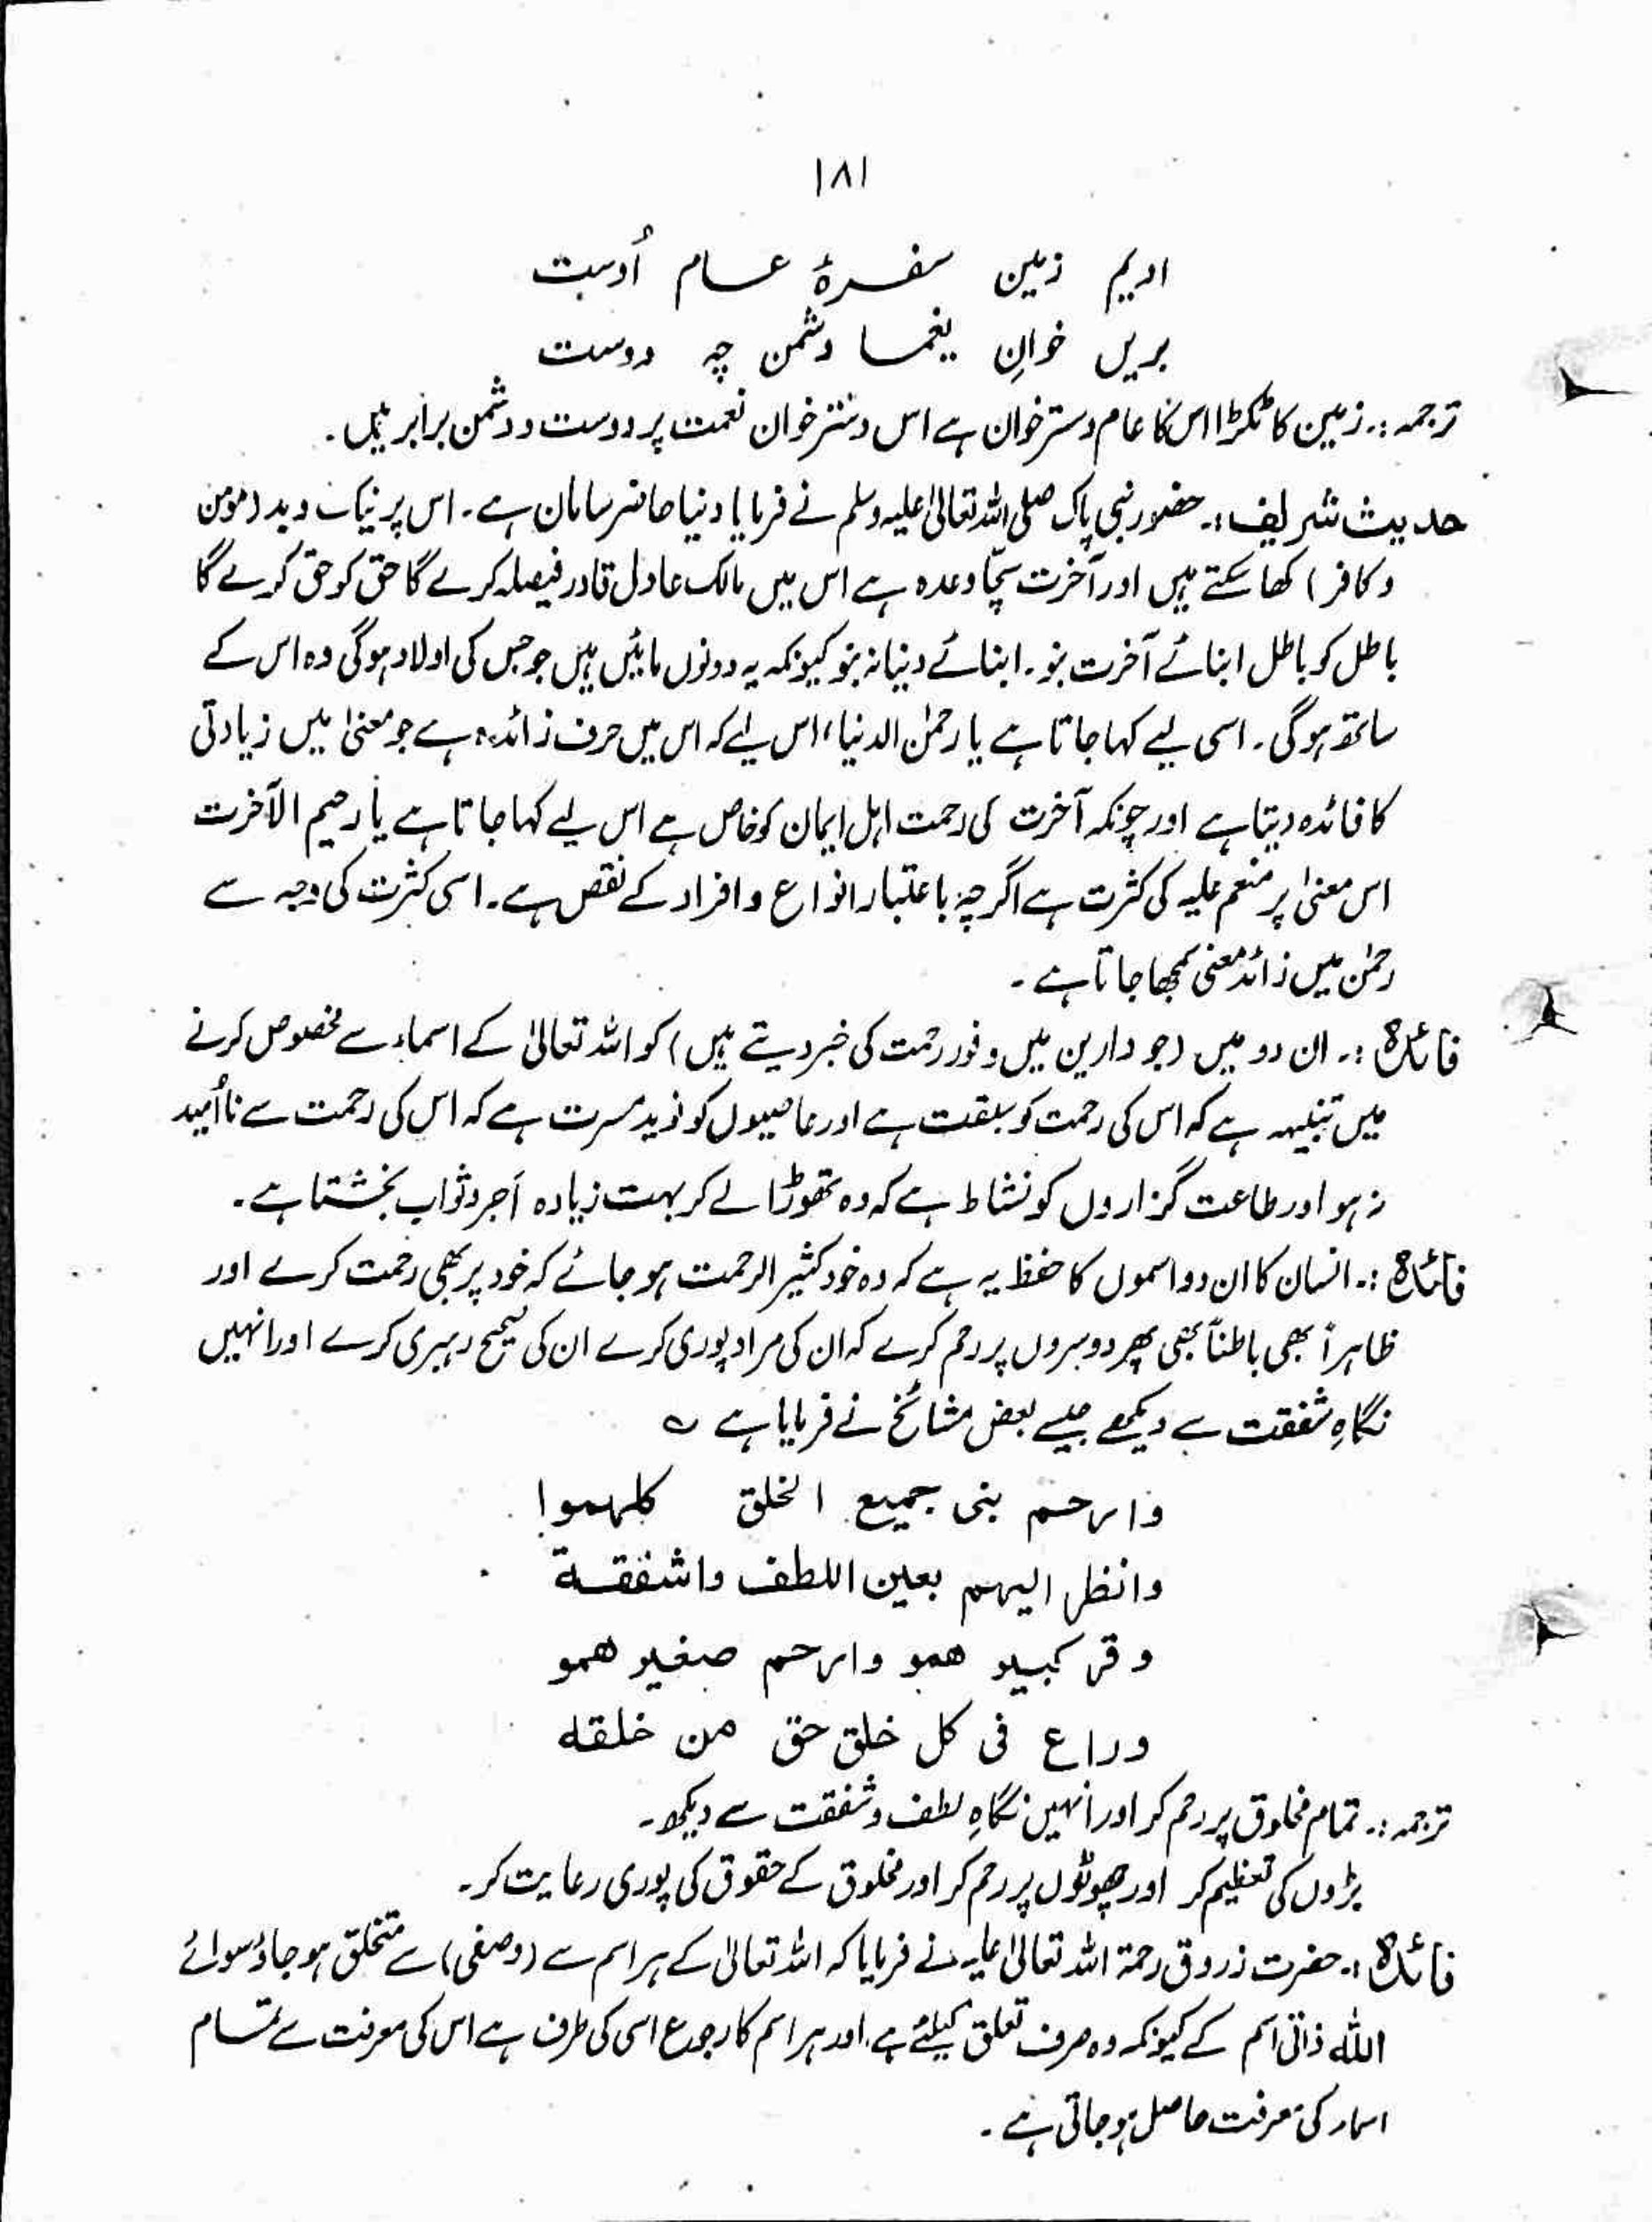 ۱۸۱
ادیم زمین سفرۂ عام اُوست
بریں خوانِ یغما دشمن چہ دوست
ترجمہ :۔ زمین کا ٹکڑا اس کا عام دسترخوان ہے اس دسترخوان نعمت پر دوست و دشمن برابر ہیں ۔
حدیث شریف :۔ حضور نبی پاک صلی اللہ تعالیٰ علیہ وسلم نے فرمایا دنیا حاضر سامان ہے ۔ اس پر نیک و بد (مومن
و کافر) کھا سکتے ہیں اور آخرت سچّا وعدہ ہے اس میں مالک عادل قادر فیصلہ کرے گا حق کو حق کرے گا
باطل کو باطل ابنائے آخرت بنو ۔ ابنائے دنیا نہ بنو کیونکہ یہ دونوں مائیں ہیں جو جس کی اولاد ہوگی وہ اس کے
ساتھ ہوگی ۔ اسی لیے کہا جاتا ہے یا رحمٰن الدنیا، اس لیے کہ اس میں حرف زائدہ ہے جو معنیٰ میں زیادتی
کا فائدہ دیتا ہے اور چونکہ آخرت کی رحمت اہل ایمان کو خاص ہے اس لیے کہا جاتا ہے یا رحیم الآخرت
اس معنیٰ پر منعم علیہ کی کثرت ہے اگرچہ باعتبار انواع و افراد کے نقص ہے ۔ اسی کثرت کی وجہ سے
رحمٰن میں زائد معنی سمجھا جاتا ہے ۔
فائدہ :۔ ان دو میں (جو دارین میں وفور رحمت کی خبر دیتے ہیں) کو اللہ تعالیٰ کے اسماء سے مخصوص کرنے
میں تنبیہہ ہے کہ اس کی رحمت کو سبقت ہے اور عاصیوں کو نوید مسرت ہے کہ اس کی رحمت سے نا اُمید
نہ ہو اور طاعت گزاروں کو نشاط ہے کہ وہ تھوڑا لے کر بہت زیادہ اَجر و ثواب بخشتا ہے ۔
فائدہ :۔ انسان کا ان دو اسموں کا حفظ یہ ہے کہ وہ خود کثیر الرحمت ہو جائے کہ خود پر بھی رحمت کرے اور
ظاہراً بھی باطناً بھی پھر دوسروں پر رحم کرے کہ ان کی مراد پوری کرے ان کی صحیح رہبری کرے اور انہیں
نگاہِ شفقت سے دیکھے جیسے بعض مشائخ نے فرمایا ہے ؎
وارحم بنی جمیع الخلق کلہموا
وانظر الیہم بعین اللطف واشفقة
وقر کبیر ھمو وارحم صغیر ھمو
وراع فی کل خلق حق من خلقہ
ترجمہ :۔ تمام مخلوق پر رحم کر اور انہیں نگاہِ لطف و شفقت سے دیکھ ۔
بڑوں کی تعظیم کر اور چھوٹوں پر رحم کر اور مخلوق کے حقوق کی پوری رعایت کر ۔
فائدہ :۔ حضرت زروق رحمۃ اللہ تعالیٰ علیہ نے فرمایا کہ اللہ تعالیٰ کے ہر اسم سے (وصفی) سے متخلق ہو جاؤ سوائے
اللہ ذاتی اسم کے کیونکہ وہ صرف تعلق کیلئے ہے ، اور ہر اسم کا رجوع اسی کی طرف ہے اس کی معرفت سے تمام
اسماء کی معرفت حاصل ہو جاتی ہے ۔